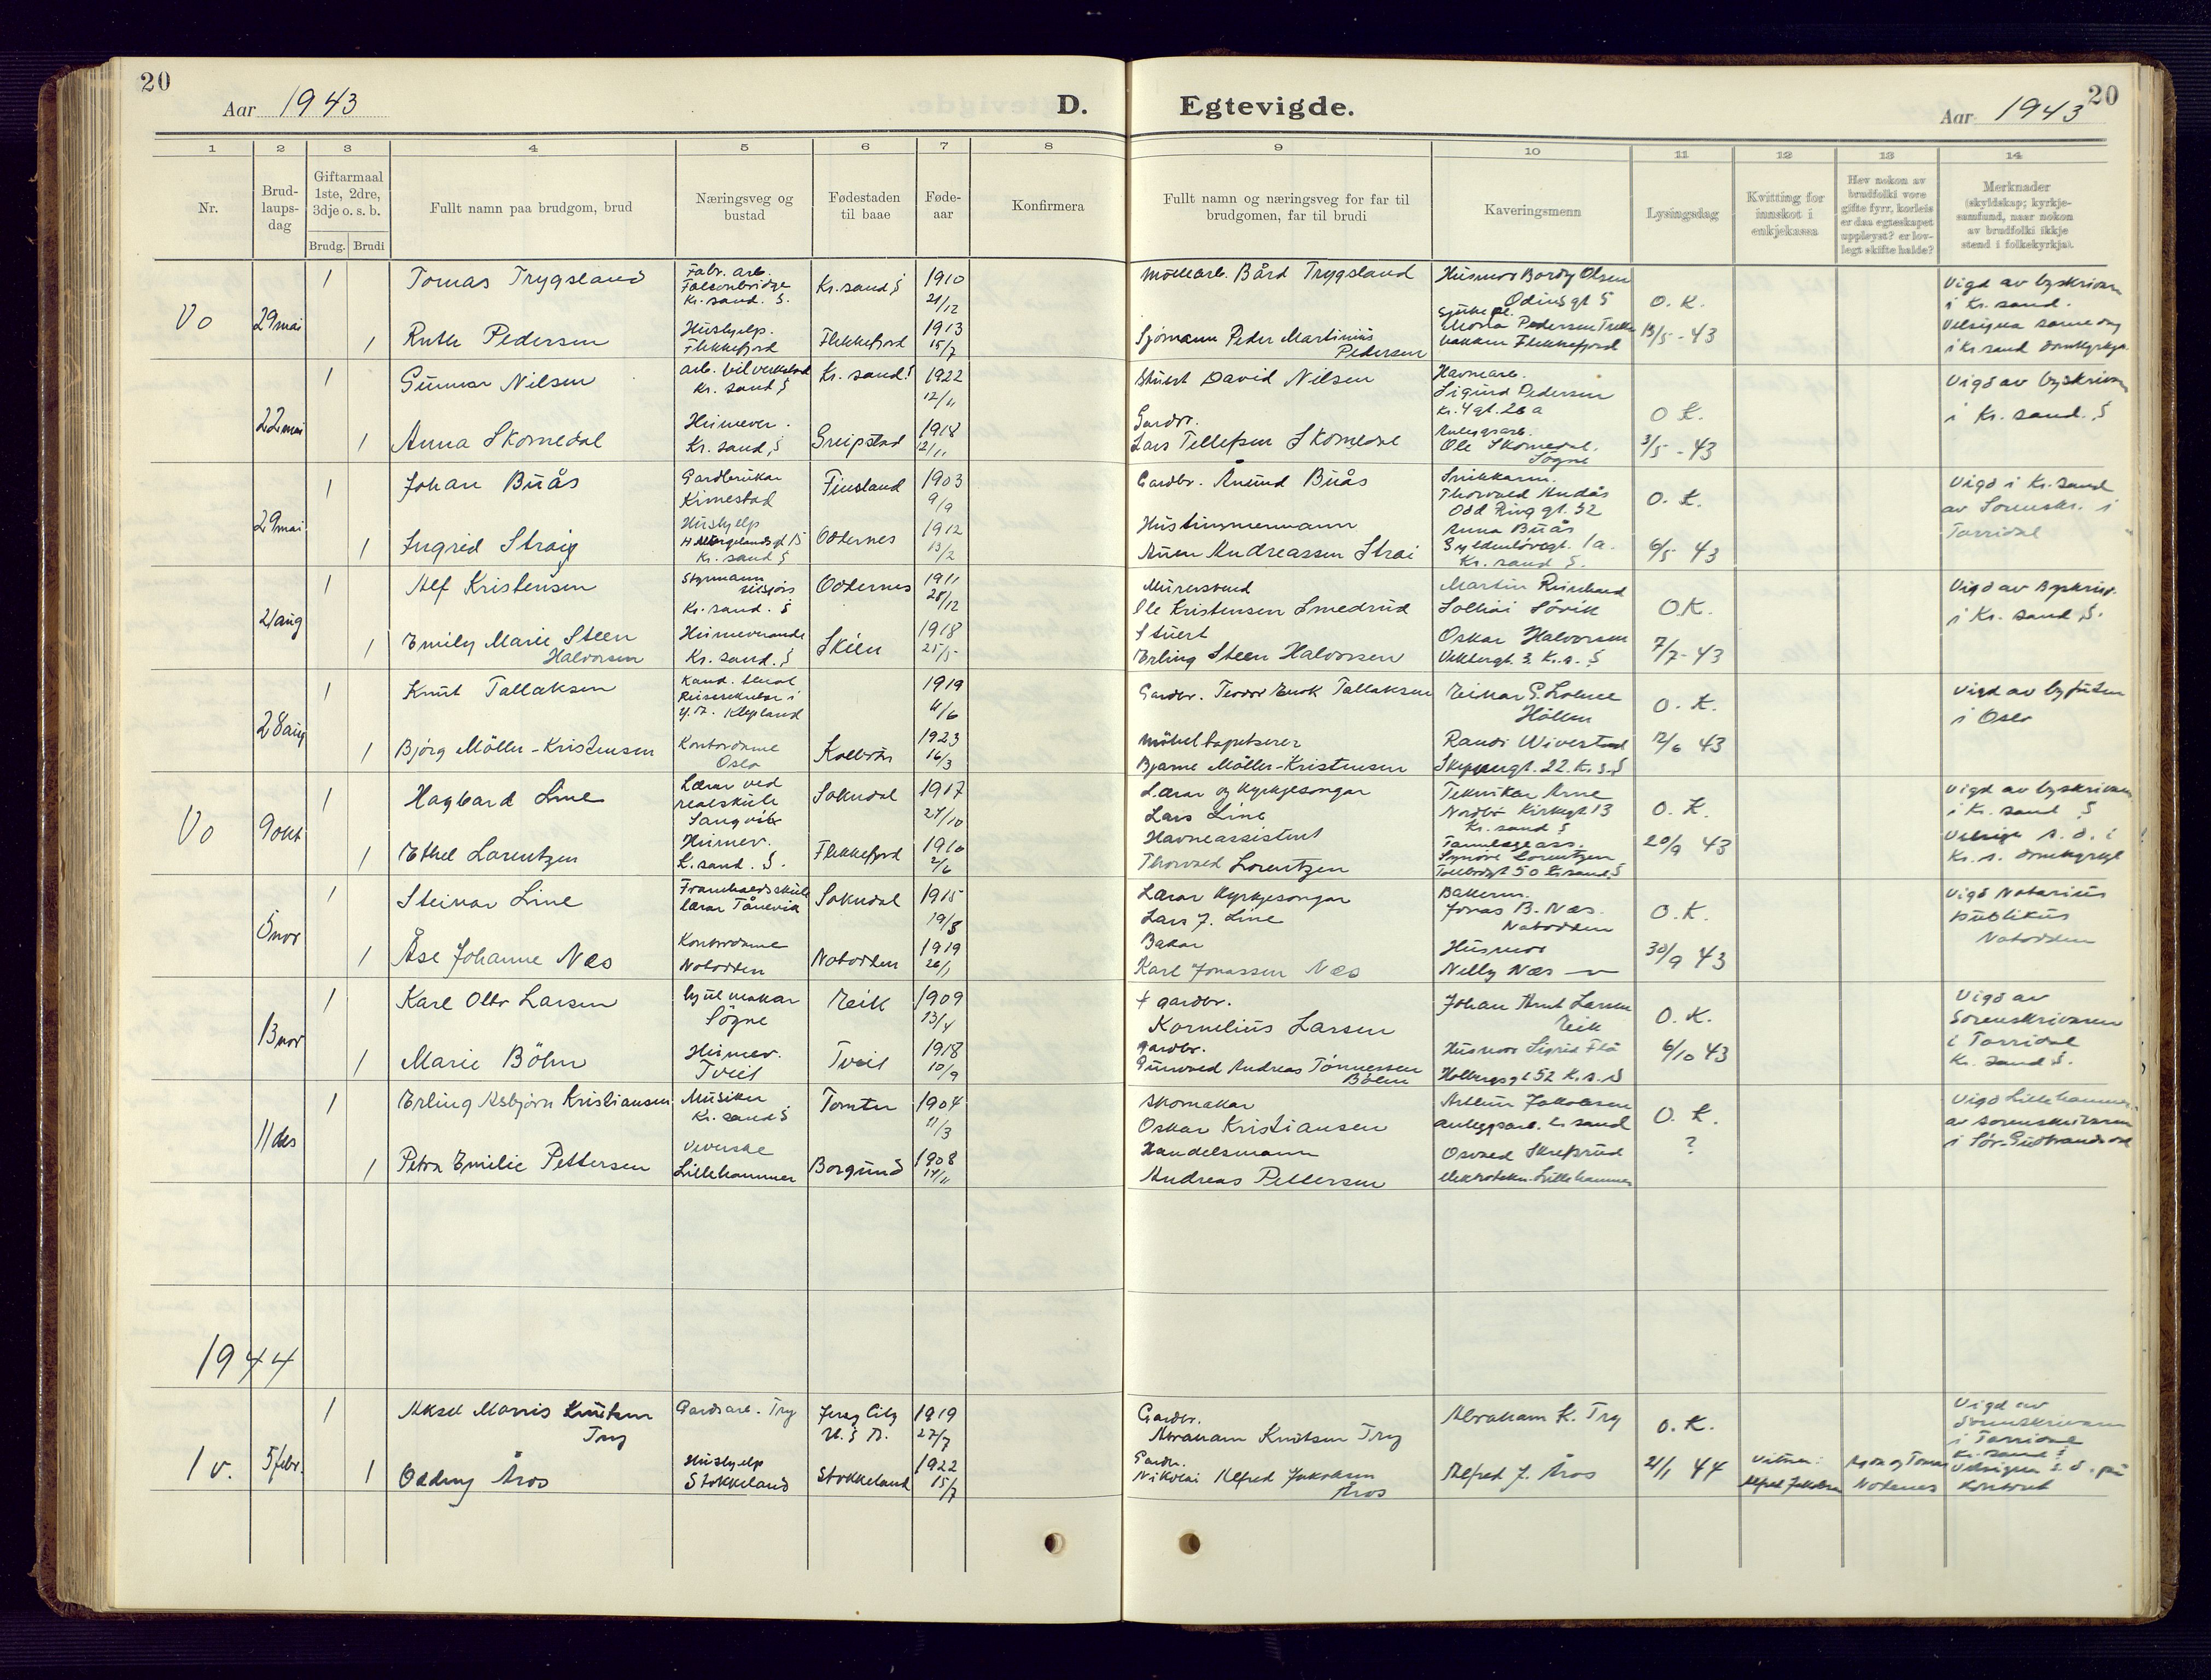 20
Aar 1943
D.
Egtevigde.
Aar 1943
20
1 2 3 4 5 6 7 8 9 10 11 12 13 14
Nr.
Brud-
laups-
dag
Giftarmaal
1ste, 2dre,
3dje o. s. b.
Brudg. Brudi
Fullt namn paa brudgom, brud
Næringsveg og
bustad
Fødestaden
til baae
Føde-
aar
Konfirmera
Fullt namn og næringsveg for far til
brudgomen, far til brudi
Kaveringsmenn
Lysingsdag
Kvitting for
innskot i
enkjekassa
Hev nokon av
brudfolki vore
gifte fyrr, korleis
er daa egteskapet
uppløyst? er lov-
legt skifte halde?
Merknader
(skyldskap; kyrkje-
samfund, naar nokon
av brudfolki ikkje
stend i folkekyrkja).
Vo 29 mai
1 Tomas Trygsland
Fabr. arb.
Falconbridge
Kr. sand. S.
Kr. sand S
1910
21/12
Møllearb. Bård Trygsland
Husmor Bordy Olsen
Odins gt 5
O. K.
Vigd av byskrivar
i Kr. sand.
Velsigna same dag
i Kr. sand domkyrkja
1 Ruth Pedersen
Hushjelp.
Flekkefjord
Flekkefjord
1913
15/7
Sjømann Peder Martinius
Pedersen
Pedersen
Flekkefjord
13/5 - 43
22 mai
1 Gunnar Nilsen
arb. bilverkstad
Kr. sand S
Kr. sand S
1922
12/11
Stuert David Nilsen
Havnearb.
Sigurd Pedersen
Kr. 4 gt. 26 a
O K.
Vigd av byskrivar
i Kr. sand. S
1 Anna Skomedal
Heimever.
Kr. sand, S
Greipstad
1918
12/11
Gardbr.
Lars Tellefsen Skomedal
Anleggsarb.
Ole Skomedal.
Søgne
3/5 - 43
29 mai
1 Johan Buås
Gardbrukar
Kimestad
Finsland
1903
9/9
Gardbr. Ånund Buås
Snikkarm.
Thorvald Andås
Odd Ring gt. 32
O. K.
Vigd i Kr. sand
av Sorenskr. i
Torridal
1 Ingrid Straiy
Hushjelp
H. Wergelandsgt 15
Kr. sand S
Oddernes
1912
13/2
Hustimmermann
Auen Andreassen Strai
Anna Buås
Gyldenløvegt. 1a.
Kr. sand S.
6/5 43
21 aug
1 Alf Kristensen
Styrmann
utsjors
Kr. sand. S
Oddernes
1911
28/12
Murersvend
Ole Kristensen Smedrud
Martin Reinhard
Solhøi Søvik
O.K.
Vigd av Byskriv.
i Kr. sand S.
1 Emily Marie Steen
Halvorsen
Heimeverande
Kr. sand. S
Skien
1918
25/5
Stuert
Erling Steen Halvorsen
Oskar Halvorsen
Vektergt. 3. K. s. S
7/7 - 43
28 aug
1 Knut Tallaksen
Kand. theol
Reisesekretær i
Y. M. Klepland
1919
4/6
Gardbr. Teodor Enok Tallaksen
Einar G. Lohne
Höllen
O. K.
Vigd av byfuten
i Oslo
1 Bjørg Möller-Kristensen
Kontordame
Oslo
Kolbotn
1923
16/3
Möbeltapetserer
Bjarne Möller-Kristensen
Randi Wiverstad
Skippergt. 22. K. s. S
12/6 43
Vo 9 okt
1 Hagbard Line
Lærar ved
realskule
Sangvik
Sokndal
1917
27/10
Lærar og kyrkjesongar
Lars Line
Teknikar Arne
Nordbø Kirkegt 13
Kr. sand S
O. K.
Vigd av byskrivar
i Kr. sand S
Velsigna s. d. i
Kr. s. domkyrkje
1 Ethel Lorentzen
Heimev.
K. sand. S.
Flekkefjord
1910
2/6
Havneassistent
Thorvald Lorentzen
Tannlegeass.
Synøve Lorentzen
Tollbodgt 50 Kr. sand S
20/9 43
5 nov
1 Steinar Line
Framhaldsskule
lærar Tånevik
Sokndal
1915
19/8
Lærar Kyrkjesongar
Lars J. Line
Bakerm.
Jonas B. Næs.
Notodden
O. K.
Vigd Notarius
publikus
Notodden
1 Åse Johanne Næs
Kontordame
Notodden
Notodden
1919
26/1
Bakar
Karl Jonassen Næs
Husmor
Nelly Næs
30/9 43
13 nov
1 Karl Otto Larsen
hjulmakar
Søgne
Eeik
1909
13/4
+ gardbr.
Kornelius Larsen
Johan Arnt Larsen
Eeik
O. K.
Vigd av
Sorenskrivaren
i Torridal
Kr. sand S.
1 Marie Böhn
Heimev.
Tveit
Tveit
1918
10/9
gardbr.
Gunvald Andreas Tønnessen
Böhn
Husmor Sigrid Flå
Holbergsgt 52 K. s. S
6/10 43
11 des
1 Erling Asbjørn Kristiansen
Musiker
Kr. sand S
Tomter
1904
11/3
Skomakar
Oskar Kristiansen
Arthur Jakobsen
anleggsarb. Kr. sand
O. K.
Vigd Lillehammer
av sorenskrivaren
i Sør-Gudbrandsdal
1 Petra Emilie Pettersen
Veverske
Lillehammer
Borgund
1908
14/11
Handelsmann
Andreas Pettersen
Osvald Skrefsrud
elektrotekn. Lillehammer
?
1944
1 v. 5 febr.
1 Aksel Morris Knutsen
Try
Gardsarb. Try
Jersey City
U. S. A.
1919
27/7
Gardbr.
Abraham Knutsen Try
Abraham K. Try
O. K.
Vigd av
Sorenskrivaren
i Torridal
Kr. sand S
Velsigna s. d. på
Kontoret
1 Oddny Åros
Hushjelp
Stokkeland
Stokkeland
1922
15/7
Gardbr.
Nikolai Alfred Jakobsen
Åros
Alfred J. Åros
21/1 44
Vitne:
Alfred Jakobsen
Nodenes